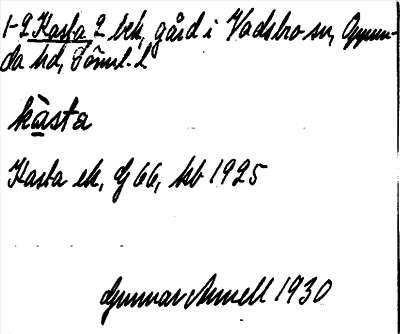 1-2 Kasta 2 bek, gård i Vadsbro sn, Oppun-
da hd, Söml. l
kàsta
Kasta ek, G 66, kb 1925
Gunnar Annell 1930